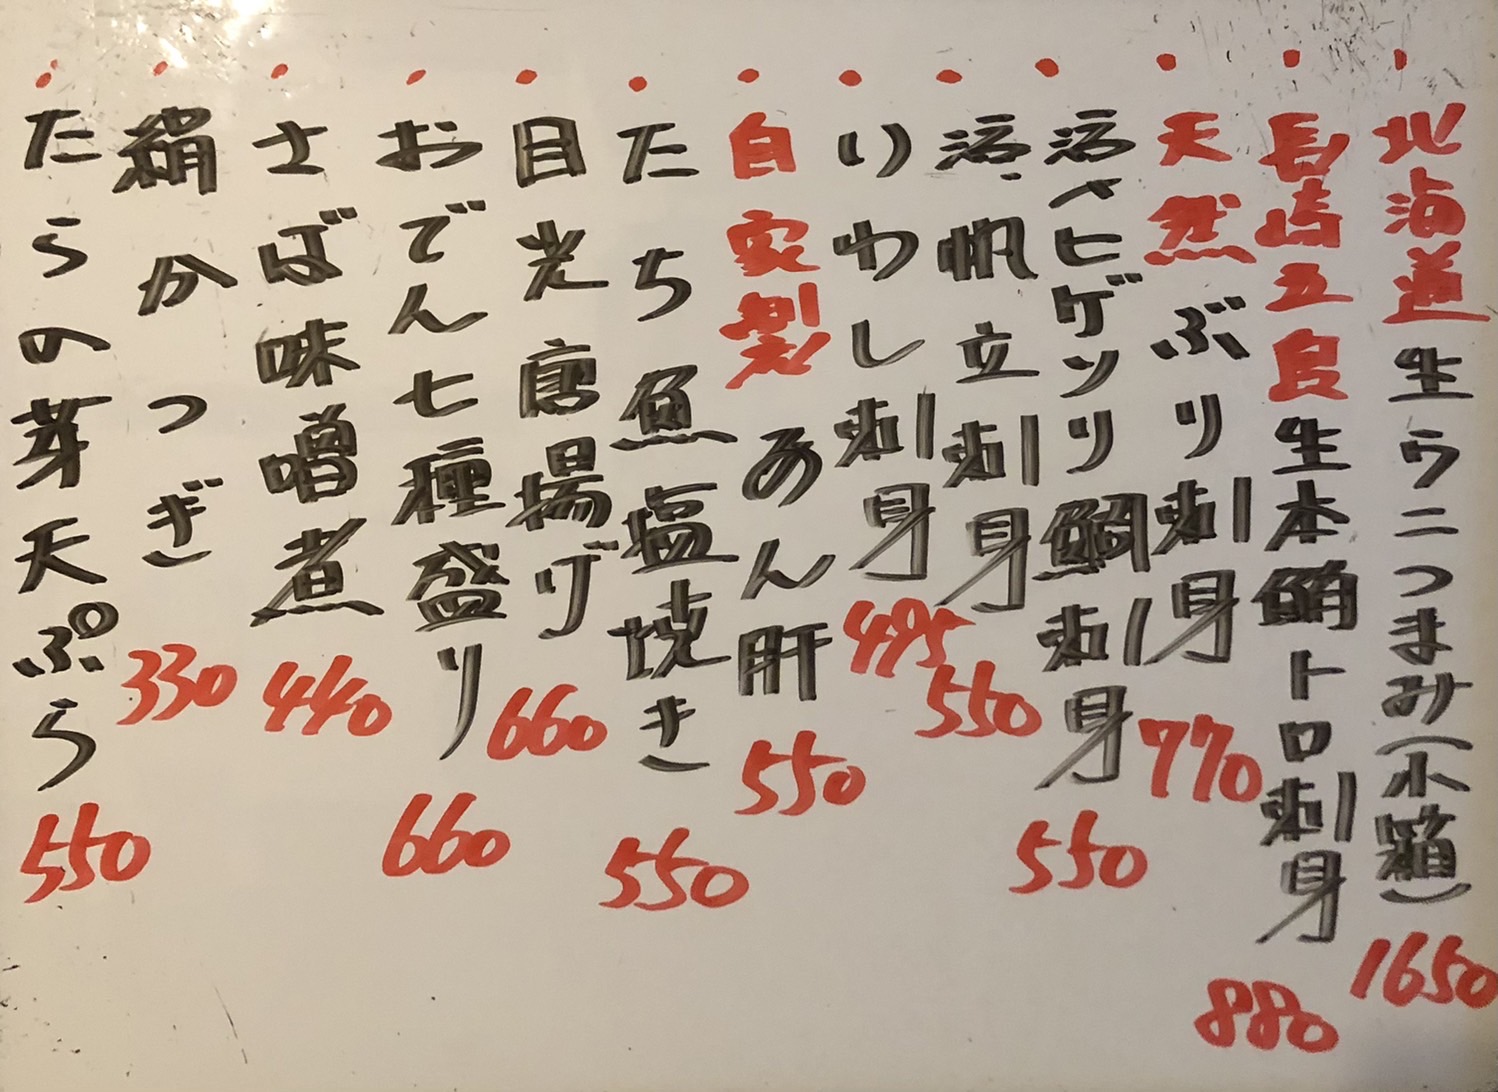 ・北海道生ウニつまみ(小箱) 1650
・長崎五島生本鮪トロ刺身 880
・天然ぶり刺身 770
・活〆ヒゲソリ鯛刺身 550
・活〆帆立刺身 550
・いわし刺身 495
・自家製あん肝 550
・たち魚塩焼き 550
・目光唐揚げ 660
・おでん七種盛り 660
・さば味噌煮 440
・絹かつぎ 330
・たらの芽天ぷら 550